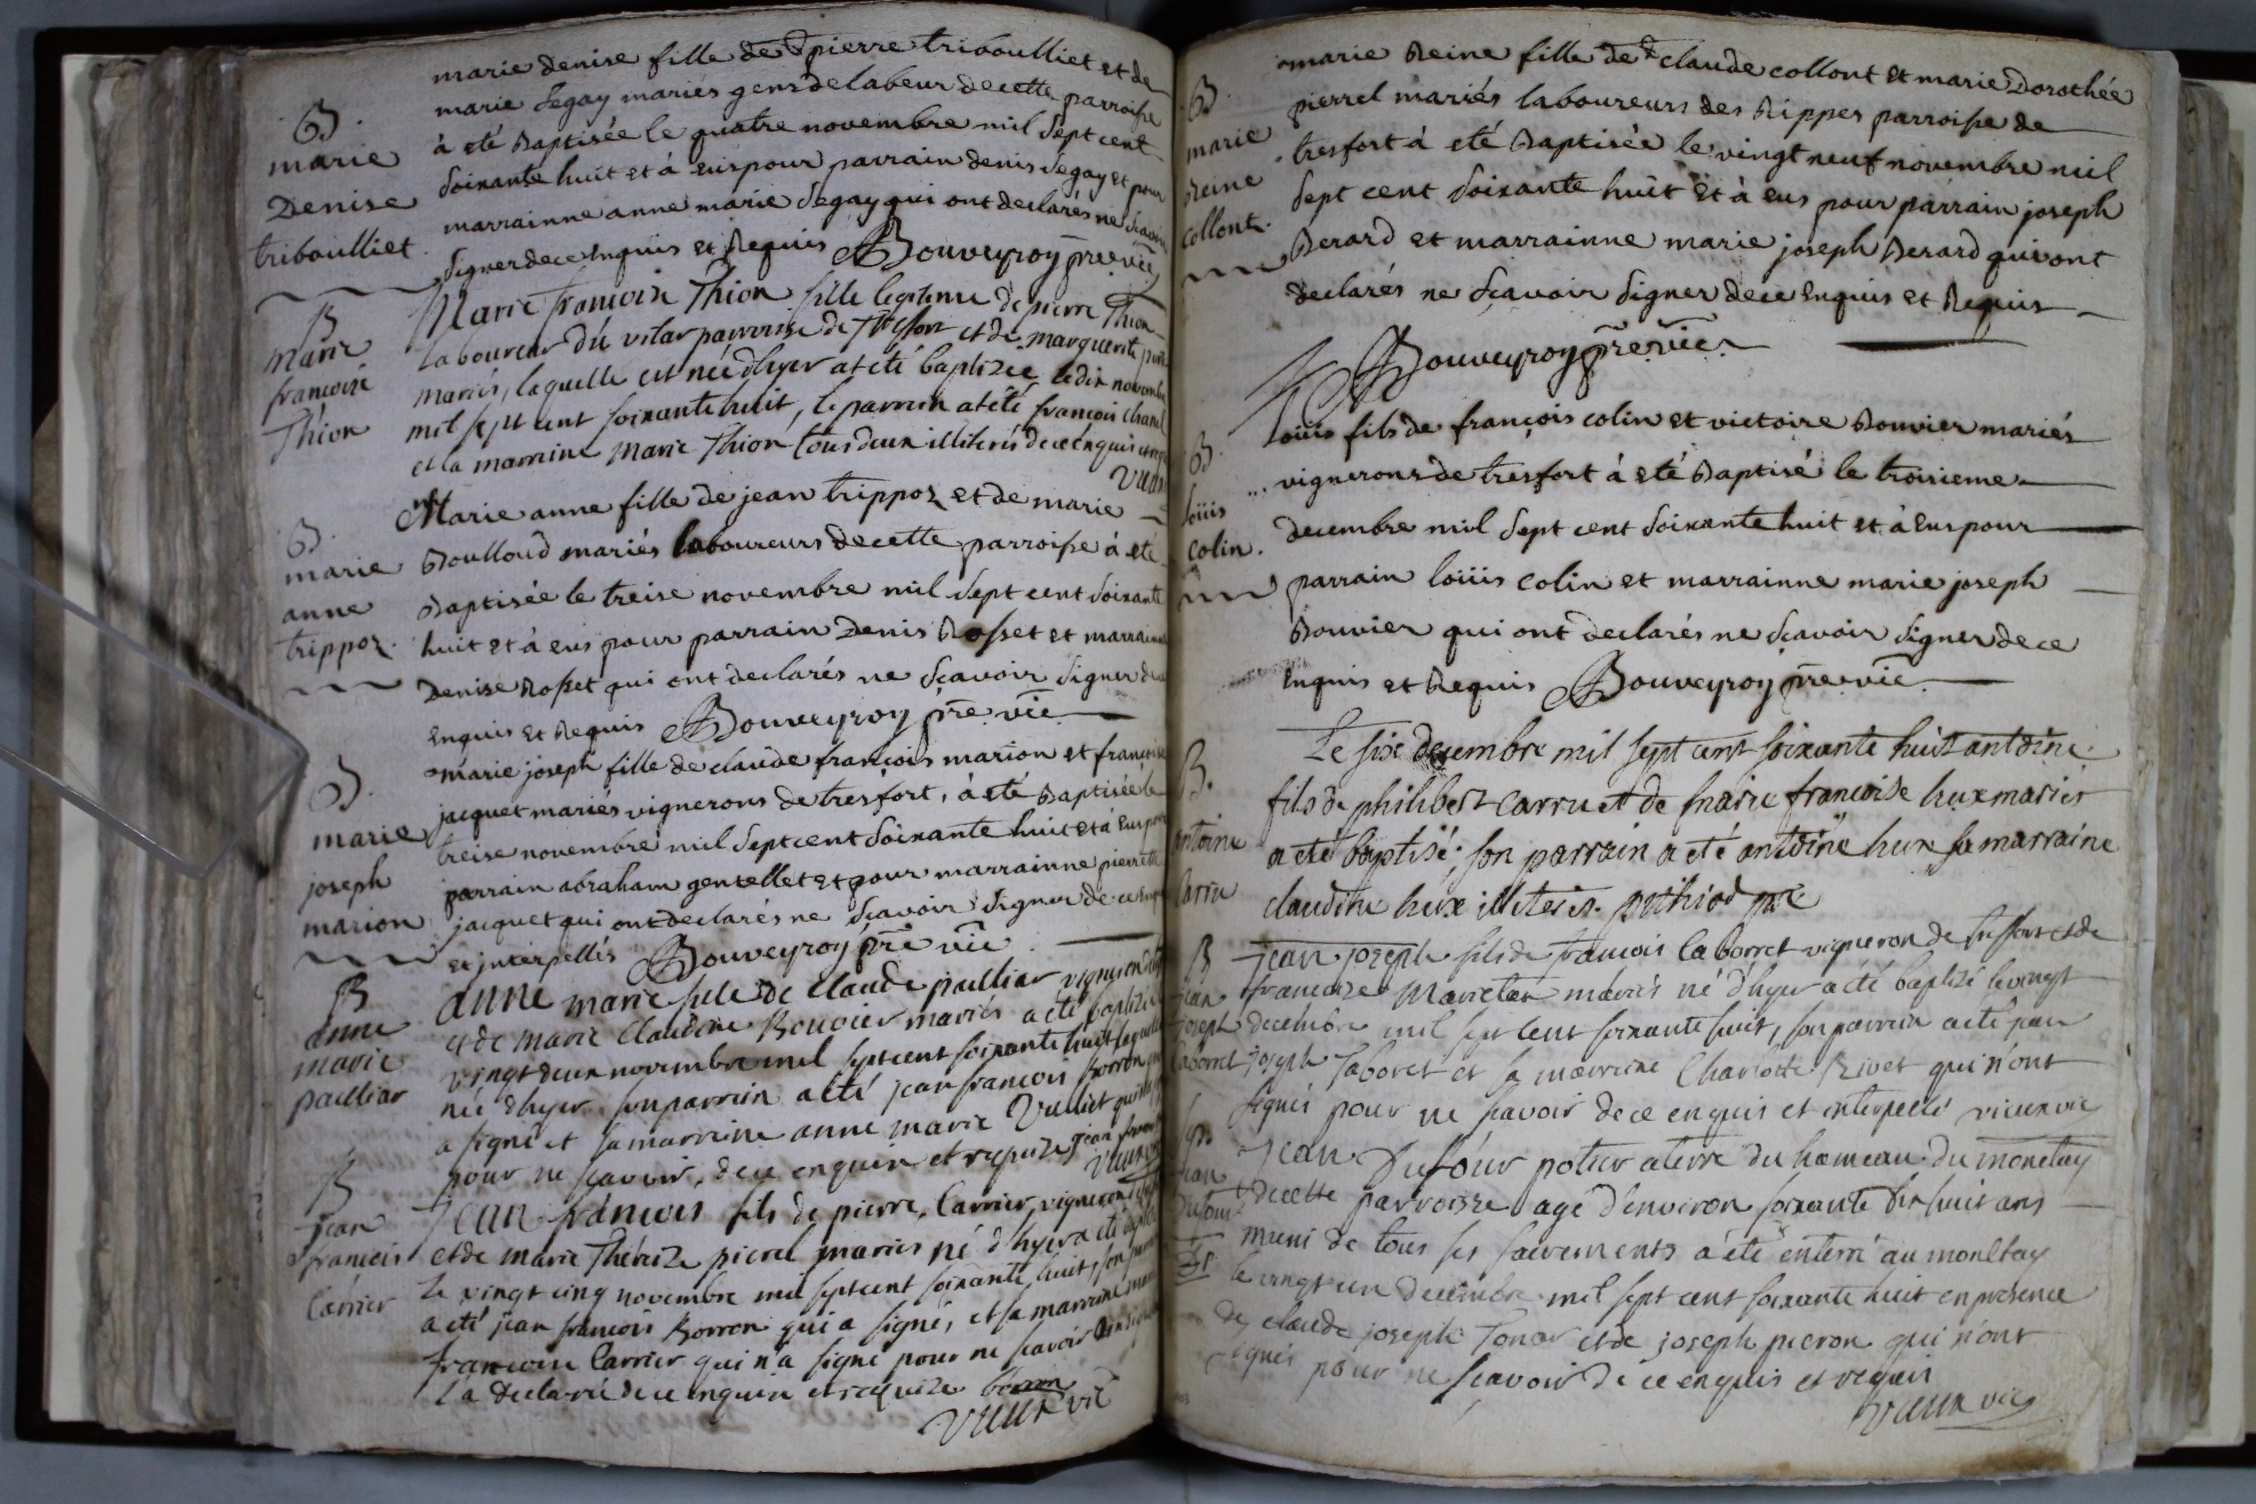 marie denise fille de pierre triboulliet et de
marie segay mariés gens de labeur de cette parroisse
à eté Baptisée le quatre novembre mil sept cent
soixante huit et à eus pour parrain denis segay et pour
marrainne anne marie segay qui ont declarés ne sçavoir
signer de ce Enquis et Requis Bouveyroy pre. vic.
B.
marie
Denise
triboulliet.
Marie françoise Thion fille legitime de pierre Thion
laboureur du vilar parroisse de et de marguerite
mariés, laquelle est née d'hyer at eté baptizée le dix novembre
mil sept cent soixante huit, le parrein at eté françois
et la marreine Marie Thion tous deux illiterés de ce enquis
B
Marie
françoise
Thion
Marie anne fille de jean trippoz et de marie
Boulloud mariés laboureurs de cette parroisse à eté
Baptisée le treise novembre mil sept cent soixante
huit et à eus pour parrain Denis Rosset et marrainne
Denise Rosset qui ont declarés ne sçavoir signer de
Enquis et Requis Bouveyroy pre. vic.
B.
marie
anne
trippoz.
marie joseph fille de claude françois marion et françoise
jacquet mariés vignerons de tresfort, à eté Baptisée le
treise novembre mil sept cent soixante huit et à Eus pour
parrain abraham gentellet et pour marrainne pierrette
jacquet qui ont declarés ne sçavoir signer de ce
et jnterpellés Bouveyroy pre vic.
B.
marie
joseph
marion
anne marie fille de claude pailliar vigneron
et de marie claudine Bouvier mariés a eté baptizée
vingt deux novembre mil sept cent soixante huit
née d'hyer son parrein a eté jean françois Borron
a signé et sa marreine anne marie Vulliet
pour ne sçavoir, de ce enquise et requize
B
anne
marie
pailliar
jean françois fils de pierre Carrier vigneron
et de marie Thérèze pierrel mariés né d'hyer a eté
le vingt cinq novembre mil sept cent soixante huit, son
a eté jean françois Borron qui a signé, et sa marreine
françoise Carrier qui n'a signé pour ne scavoir
l'a declaré de ce enquise et requize borron
B
jean
francois
Carrier
marie Reine fille de claude collont et marie Dorothée
pierrel mariés laboureurs des Rippes parroisse de
tresfort à eté Baptisée le vingt neuf novembre mil
sept cent soixante huit et à eus pour parrain joseph
Berard et marrainne marie joseph Berard qui ont
declarés ne sçavoir signer de ce Enquis et Requis
Bouveyroy pre. vic.
B.
marie
Reine
collont.
loüis fils de françois colin et victoire Bouvier mariés
vignerons de tresfort à eté Baptisé le troisieme
decembre mil sept cent soixante huit et à Eus pour
parrain loüis colin et marrainne marie joseph
Bouvier qui ont declarés ne sçavoir signer de ce
Enquis et Requis Bouveyroy pre vic.
B.
loüis
colin.
Le six decembre mil sept cent soixante huit antoine
fils de philibert Carru et de marie francoise hux mariés
a eté baptisé; son parrain a eté antoine hux sa marraine
claudine hux illiterés. puthiod pre
B.
antoine
Carru
jean joseph fils de francois laborret vigneron de et de
francoize mariés né d'hyer a eté baptizé le vingt
decembre mil sept cent soixante huit, son parrein a eté jean
joseph laboret et sa marreine Charlotte Rivet qui n'ont
signés pour ne scavoir de ce enquis et interpellé
B
jean
joseph
laborret
Jean Dufour potier a terre du hameau du monetay
de cette parroisse agé d'environ soixante dix huit ans
muni de tous ses sacrements a été enterré au
le vingt un decembre mil sept cent soixante huit en presence
de claude joseph et de joseph qui n'ont
signés pour ne scavoir de ce enquis et requis
jean
Dufour